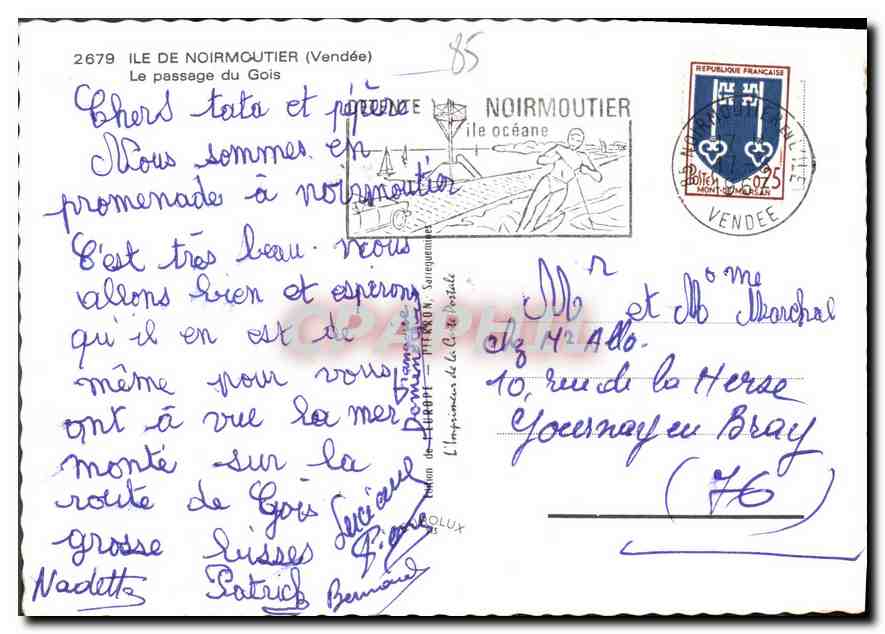 2679 ILE DE NOIRMOUTIER (Vendée)
Le passage du Gois
85
Chers tata et pépère
Nous sommes en
promenade à noirmoutier
C'est très beau. nous
allons bien et espérons
qu'il en est de
même pour vous
ont à vue la mer
monté sur la
route de Gois
grosse bisses
Nadette Patrick Bernard
Luciane
Pierre
Francine
Dominique
NOIRMOUTIER
île océane
REPUBLIQUE FRANÇAISE
Postes 0,25
MONT-DE-MARSAN
85 NOIRMOUTIER EN L'ILE
VENDEE
Edition de l'EUROPE — PIERRON, Sarreguemines
L'Imprimeur de la Carte Postale
Mr et Mme Marchal
chz Mr Allo.
10, rue de la Herse
Gournay en Bray
(76)
CPARAMA